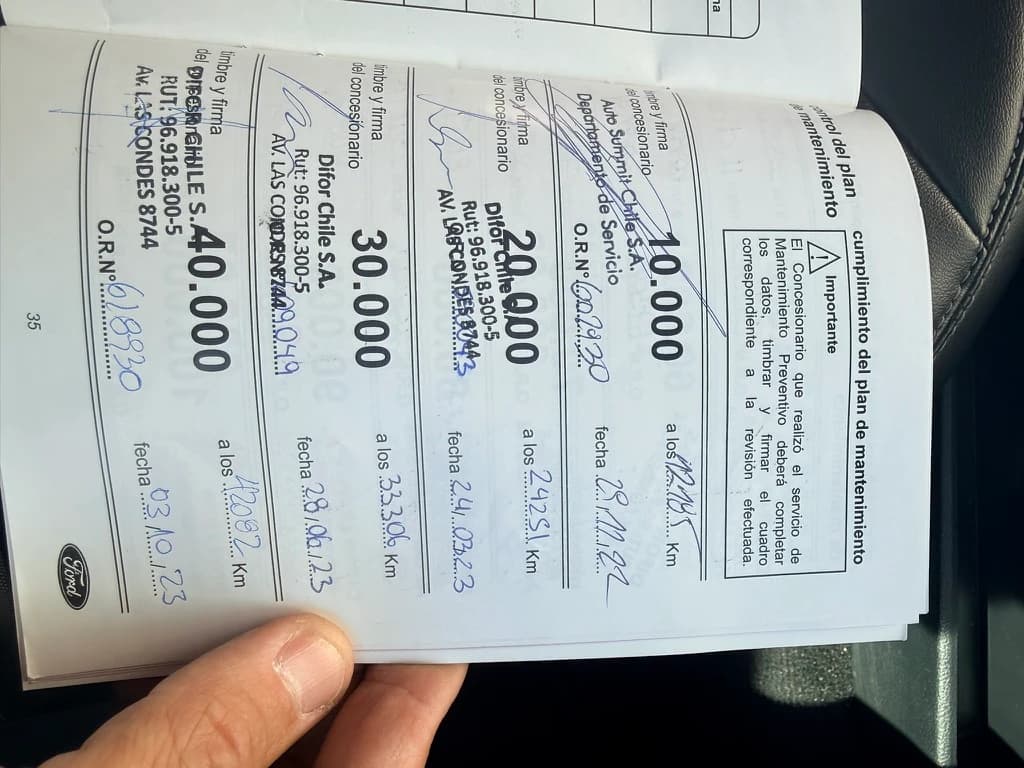 na
control del plan
de mantenimiento
cumplimiento del plan de mantenimiento
Importante
El Concesionario que realizó el servicio de
Mantenimiento Preventivo deberá completar
los datos, timbrar y firmar el cuadro
correspondiente a la revisión efectuada.
10.000
timbre y firma
del concesionario
Auto Summit Chile S.A.
Departamento de Servicio
a los Km
O.R.Nº 6002930
fecha 29.11.22
20.000
timbre y firma
del concesionario
Difor Chile S.A.
Rut: 96.918.300-5
AV. LAS CONDES 8744
a los 24251 Km
fecha 24.03.23
30.000
timbre y firma
del concesionario
Difor Chile S.A.
Rut: 96.918.300-5
AV. LAS CONDES 8744
a los 33306 Km
fecha 28.06.23
40.000
timbre y firma
del concesionario
DIFOR CHILE S.A.
RUT: 96.918.300-5
AV. LAS CONDES 8744
a los 42082 Km
O.R.Nº 618930
fecha 03.10.23
35
Ford